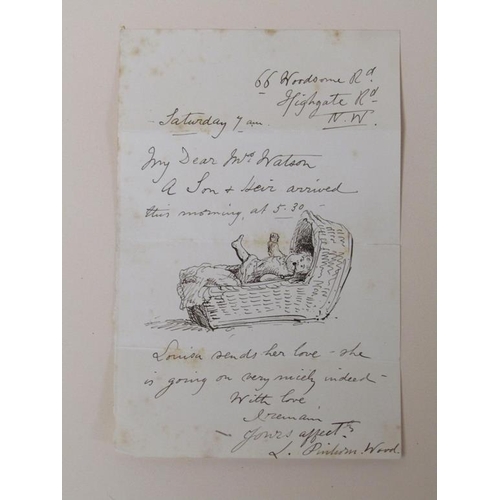 66 Woodsome Rd
Highgate Rd
N.W.
Saturday 7 am
My Dear Mrs Watson
A Son & Heir arrived
this morning, at 5.30
Louisa sends her love - she
is going on very nicely indeed -
With love
I remain
Yours affectly
L. Pinhorn Wood